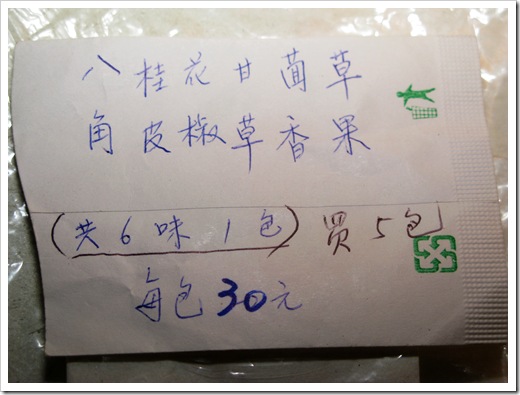 八桂花甘茴草
角皮椒草香果
(共6味1包)買5包
每包30元